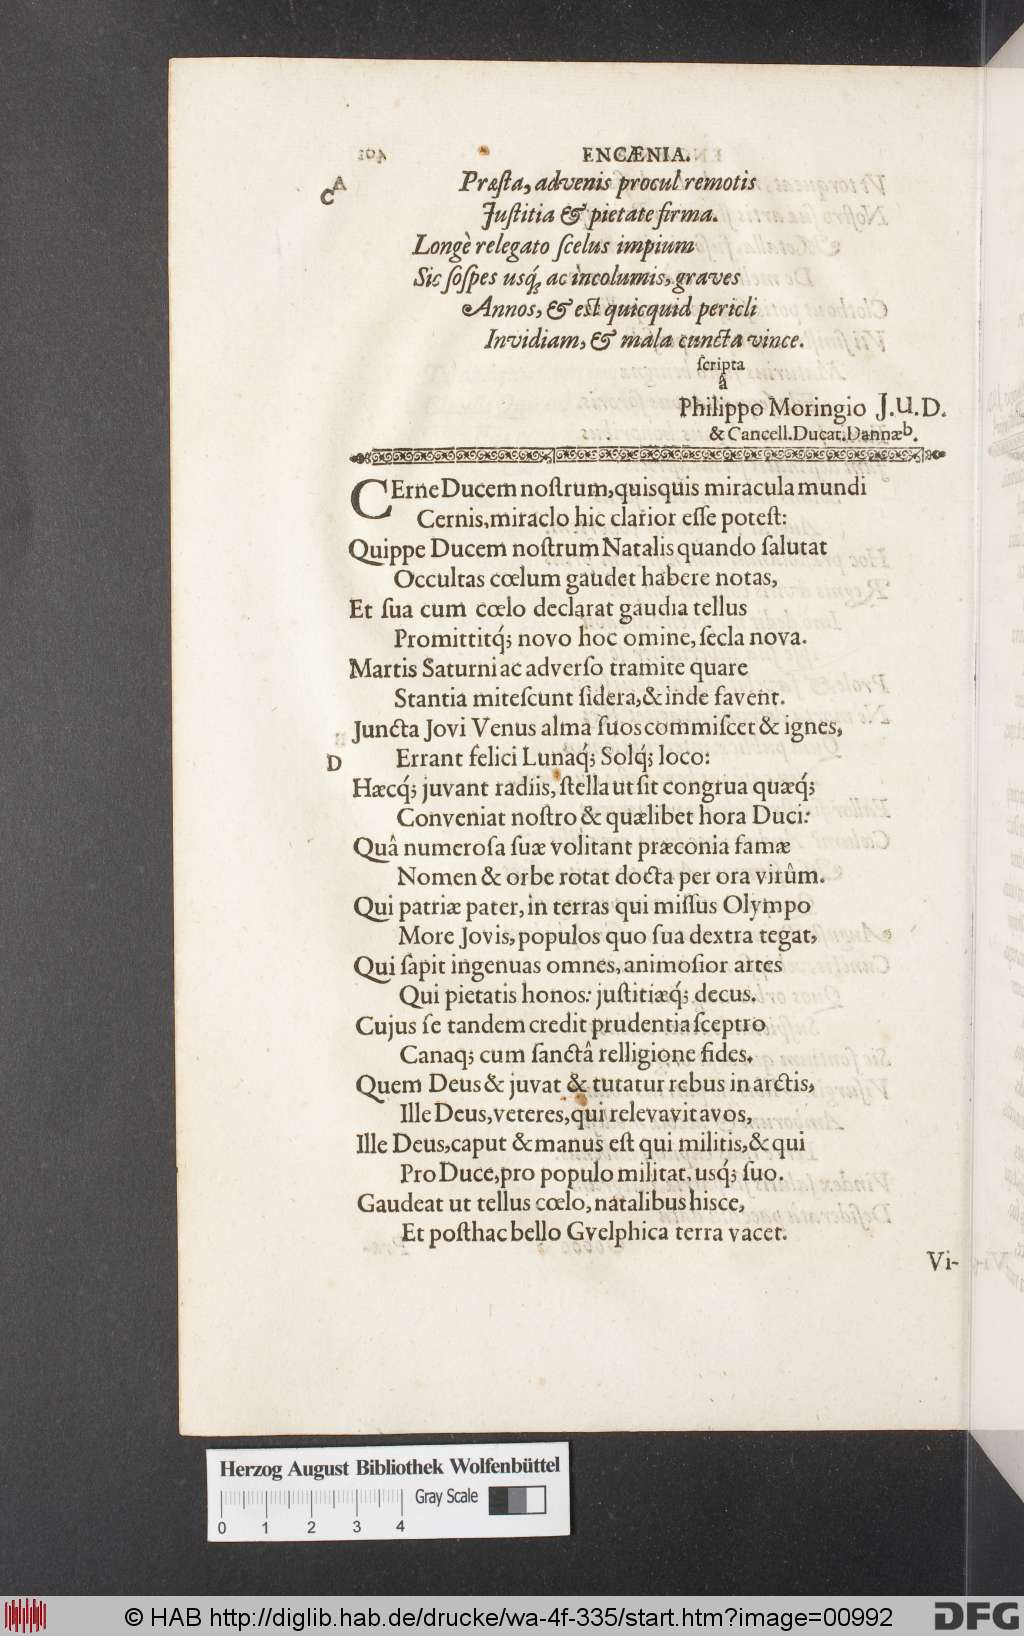 ENCÆNIA.
C A
Præſta, advenis procul remotis
Juſtitia & pietate firma.
Longè relegato ſcelus impium
Sic ſoſpes usq́; ac incolumis, graves
Annos, & eſt quicquid pericli
Invidiam, & mala cuncta vince.
ſcripta
à
Philippo Moringio J.U.D.
& Cancell. Ducat. Dannæb.
CErne Ducem noſtrum, quisquis miracula mundi
Cernis, miraclo hic clarior eſſe poteſt:
Quippe Ducem noſtrum Natalis quando ſalutat
Occultas cœlum gaudet habere notas,
Et ſua cum cœlo declarat gaudia tellus
Promittitq́; novo hoc omine, ſecla nova.
Martis Saturni ac adverſo tramite quare
Stantia miteſcunt ſidera, & inde favent.
Juncta Jovi Venus alma ſuos commiſcet & ignes,
D
Errant felici Lunaq́; Solq́; loco:
Hæcq́; juvant radiis, ſtella ut ſit congrua quæq́;
Conveniat noſtro & quælibet hora Duci:
Quâ numeroſa ſuæ volitant præconia famæ
Nomen & orbe rotat docta per ora virûm.
Qui patriæ pater, in terras qui miſſus Olympo
More Jovis, populos quo ſua dextra tegat,
Qui ſapit ingenuas omnes, animoſior artes
Qui pietatis honos: juſtitiæq́; decus.
Cujus ſe tandem credit prudentia ſceptro
Canaq; cum ſanctâ relligione fides.
Quem Deus & juvat & tutatur rebus in arctis,
Ille Deus, veteres, qui relevavit avos,
Ille Deus, caput & manus eſt qui militis, & qui
Pro Duce, pro populo militat, usq́; ſuo.
Gaudeat ut tellus cœlo, natalibus hisce,
Et poſthac bello Gvelphica terra vacet.
Vi-
Herzog August Bibliothek Wolfenbüttel
Gray Scale
0 1 2 3 4
© HAB http://diglib.hab.de/drucke/wa-4f-335/start.htm?image=00992
DFG